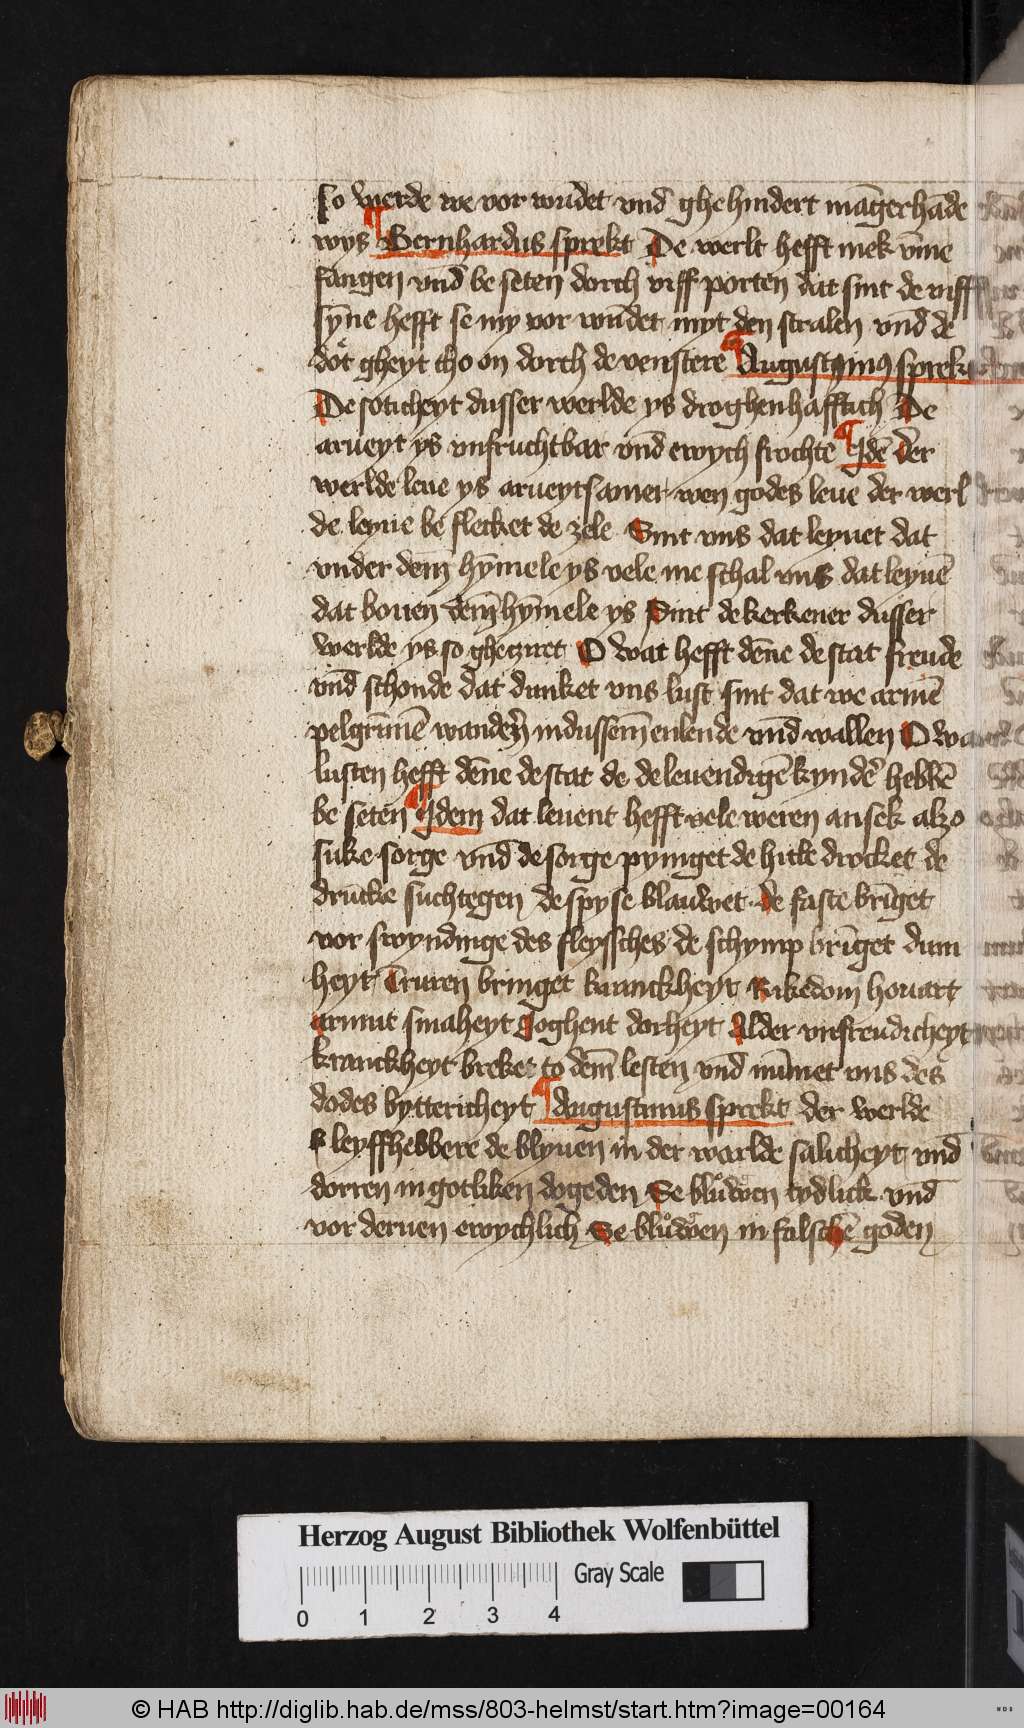 so werde we vor wūdet vnd ghe hindert māgerhāde
wys ¶ Bernhardus sprekt De werlt hefft mek vm̄e
fangen vnd be seten dorch viff porten dat sint de viff
syn̄e hefft se my vor wūdet myt den stralen vnd de
dot gheyt tho on dorch de venstere ¶ Augustinus sprekt
De soticheyt dusser werlde ys droghenhafftich De
arueyt ys vnfruchtbar vnd ewych frochte ¶ Idē der
werlde leue ys arueytsamer wen godes leue der werl
de leyue be flecket de zele Sint vns dat leyuet dat
vnder dem hym̄ele ys vele me schal vns dat leyuē
dat bouen dem hym̄ele ys Sint de kerkener dusser
werlde ys so ghetziret O wat hefft dēne de stat freude
vnd schonde dat dunket vns lust sint dat we armē
pelgrīmē wandern in dussem enlende vnd wallen O wat
lusten hefft dēne de stat de de leuendigē kynder hebbē
be seten ¶ Idem dat leuent hefft vele weren an sek alzo
suke sorge vnd de sorge pyniget de hitte drocket de
drūcke suchtegen de spyse blauwet de faste brīget
vor swyndinge des fleyssches de schymp brīget dum
heyt Truren bringet kranckheyt Rikedom houart
armut smaheyt Joghent dorheyt Alder vnfreudicheyt
kranckheyt breket to dem lesten vnd nīmet vns des
dodes byttericheyt ¶ Augustinus sprekt der werlde
leyffhebbere de blyuen in der warlde salicheyt vnd
dorren in gotliken dogeden Se bluͦwen tydlick vnd
vor deruen ewychlich Se bluͦwen in falschē goden
Herzog August Bibliothek Wolfenbüttel
Gray Scale
0 1 2 3 4
© HAB http://diglib.hab.de/mss/803-helmst/start.htm?image=00164